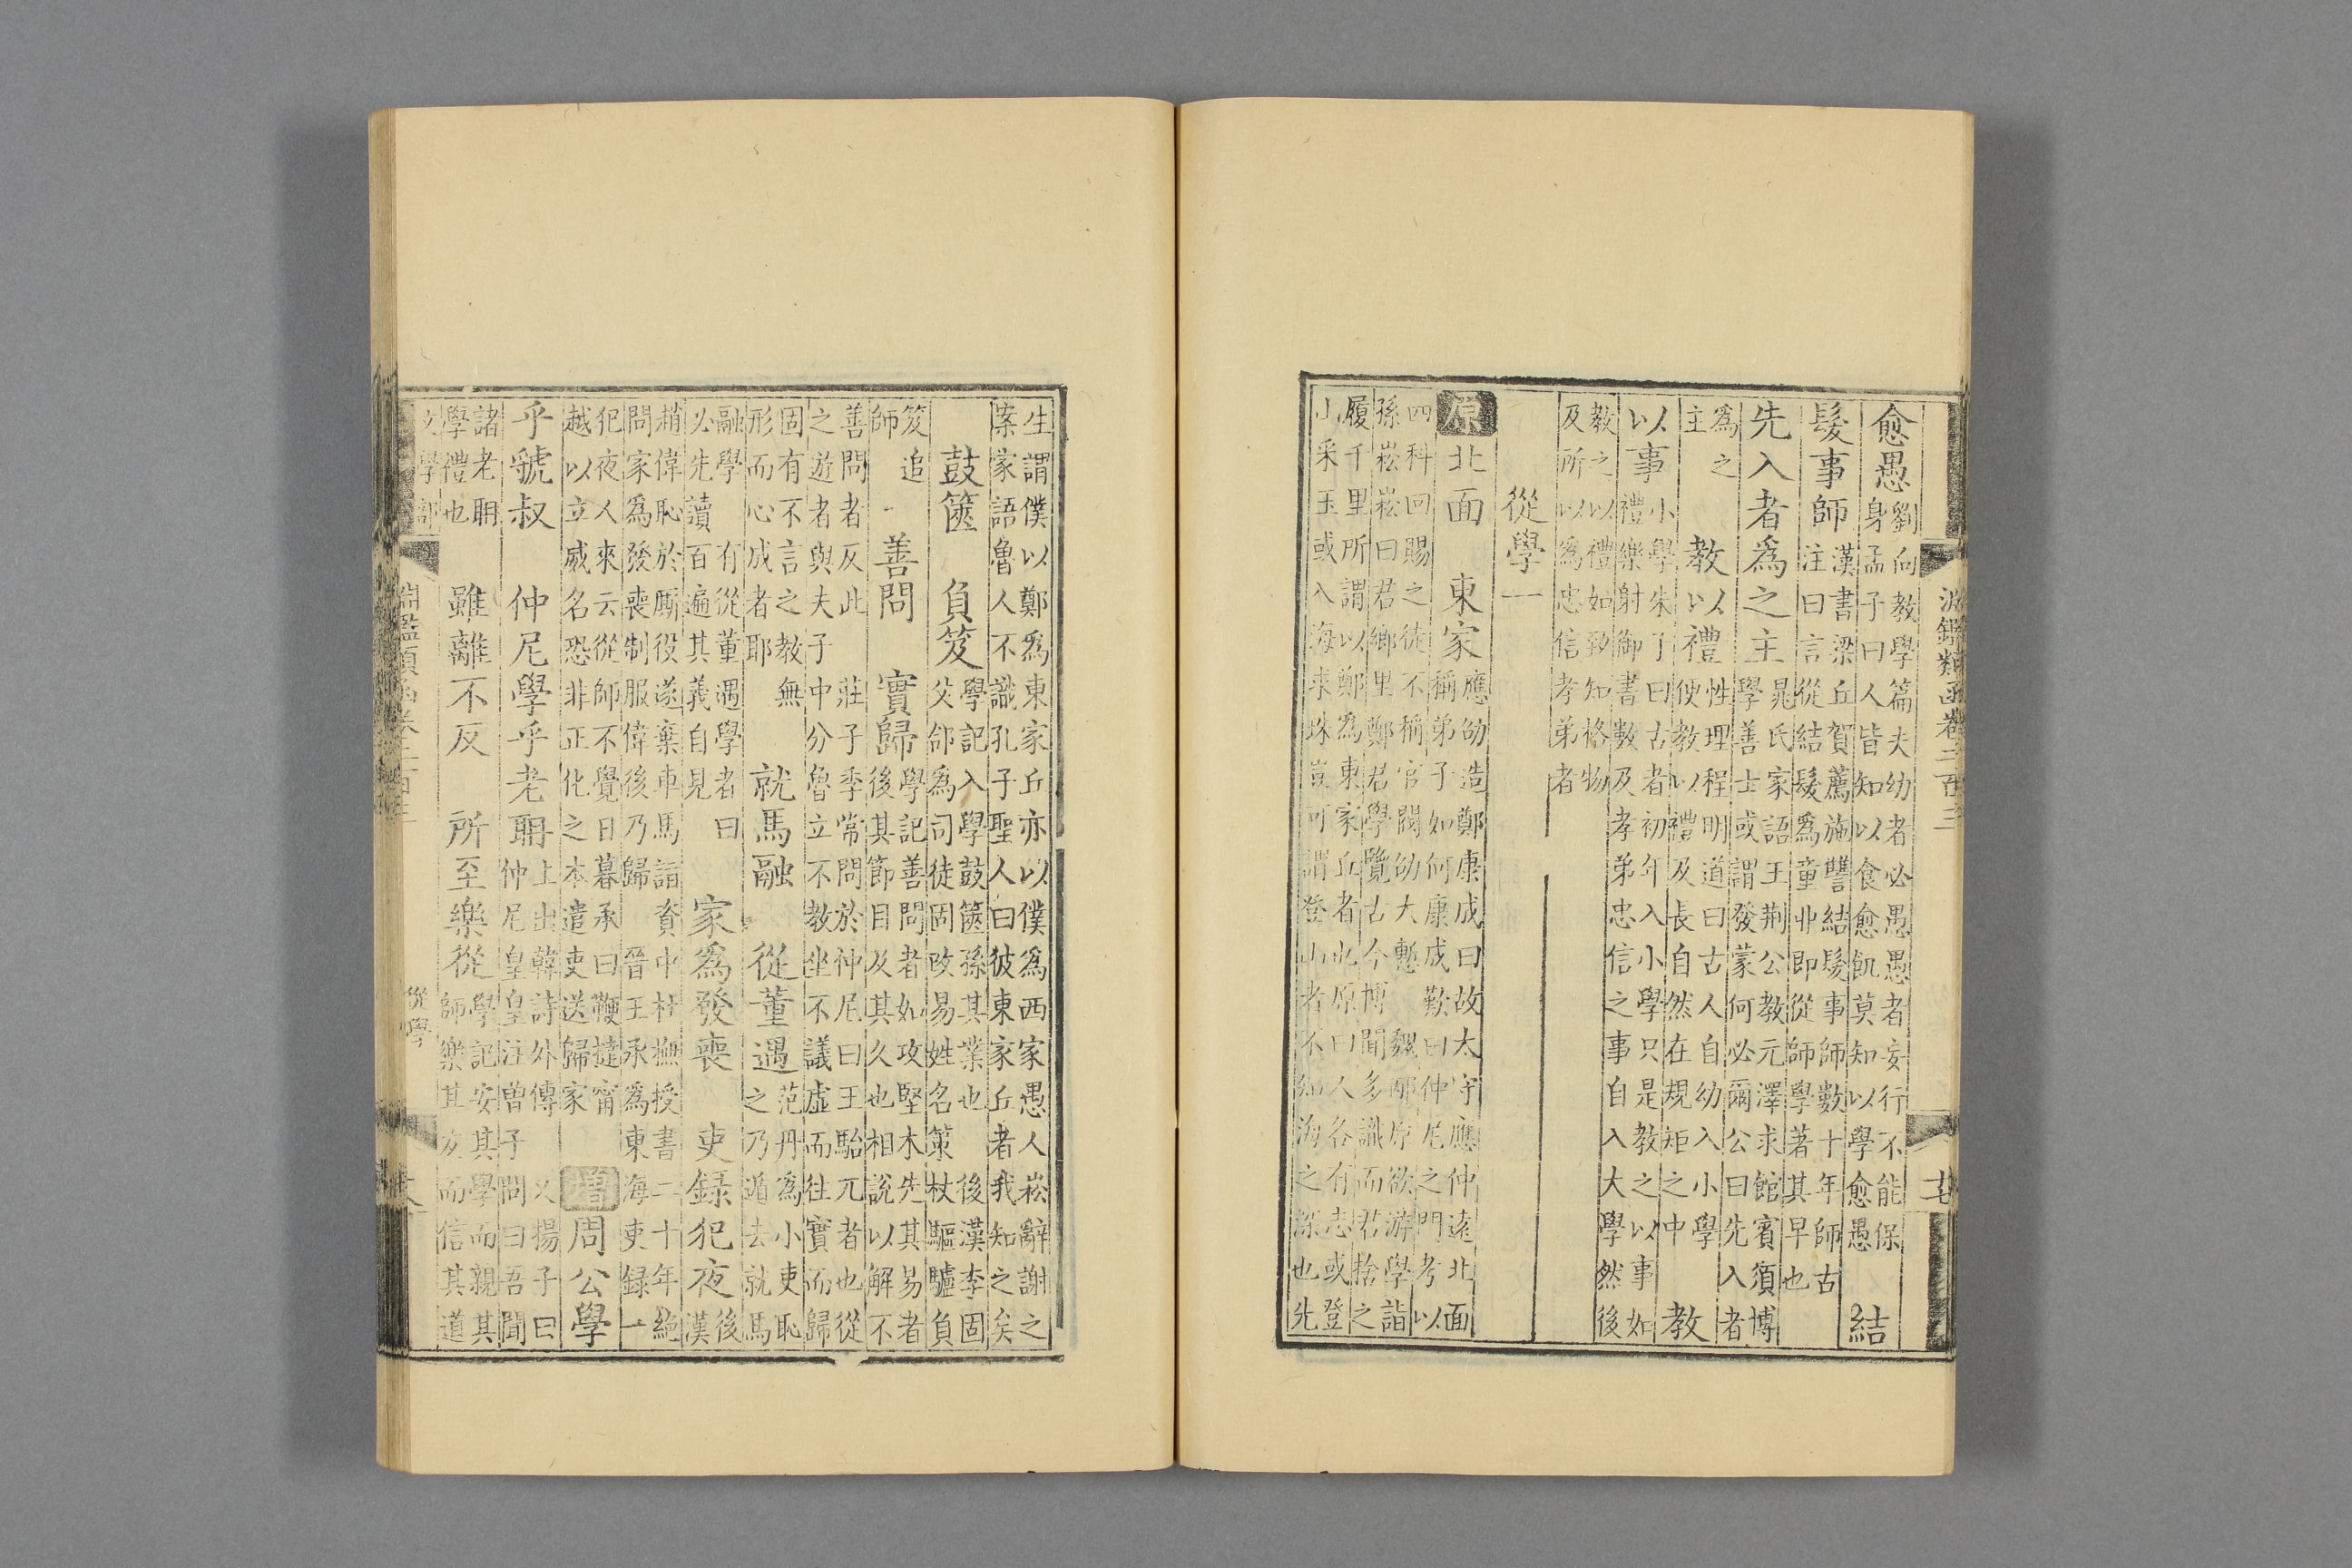 淵鑑類函卷二百三
十七
愈愚劉向教學篇夫幼者必愚愚者妄行不能保身孟子曰人皆知以食愈飢莫知以學愈愚 結
髮事師漢書梁丘賀薦施讐結髮事師數十年師古注曰言從結髮為童丱即從師學著其早也
先入者為之主晁氏家語王荆公教元澤求館賓須博學善士或謂發蒙何必爾公曰先入者
為之主 教以禮性理程明道曰古人自幼入小學使教以禮及長自然在規矩之中 教
以事小學朱子曰古者初年入小學只是教之以事如禮樂射御書數及孝弟忠信之事自入大學然後
教之以禮如致知格物及所以為忠信孝弟者
從學一
原北面 東家應劭造鄭康成曰故太守應仲遠北面稱弟子如何康成歎曰仲尼之門考以
四科回賜之徒不稱官閥劭大慙 魏邴原欲游學詣孫崧崧曰君鄉里鄭君學覽古今博聞多識而君捨之
履千里所謂以鄭為東家丘者也原曰人各有志或登山采玉或入海求珠豈可謂登山者不知海之深也先
生謂僕以鄭為東家丘亦以僕為西家愚人崧辭謝之案家語魯人不識孔子聖人曰彼東家丘者我知之矣
鼓篋 負笈學記入學鼓篋孫其業也 後漢李固父郃為司徒固改易姓名策杖驅驢負
笈追師 善問 實歸學記善問者如攻堅木先其易者後其節目及其久也相說以解不
善問者反此 莊子季常問於仲尼曰王駘兀者也從之遊者與夫子中分魯立不教坐不議虛而往實而歸
固有不言之教無形而心成者耶 就馬融 從董遇范丹為小吏恥之乃遁去就馬
融學 有從董遇學者曰必先讀百遍其義自見 家為發喪 吏録犯夜後漢
趙偉恥於厮役遂棄車馬詣資中杜撫授書二十年絕問家為發喪制服偉後乃歸 晉王承為東海吏録一
犯夜人來云從師不覺日暮承曰鞭撻甯越以立威名恐非正化之本遣吏送歸家 增周公學
乎虢叔 仲尼學乎老聃上出韓詩外傳 又揚子曰仲尼皇皇注曾子問曰吾聞
諸老聃學禮也 雖離不反 所至樂從學記安其學而親其師樂其友而信其道
文學部
淵鑑類函卷二百三
從學